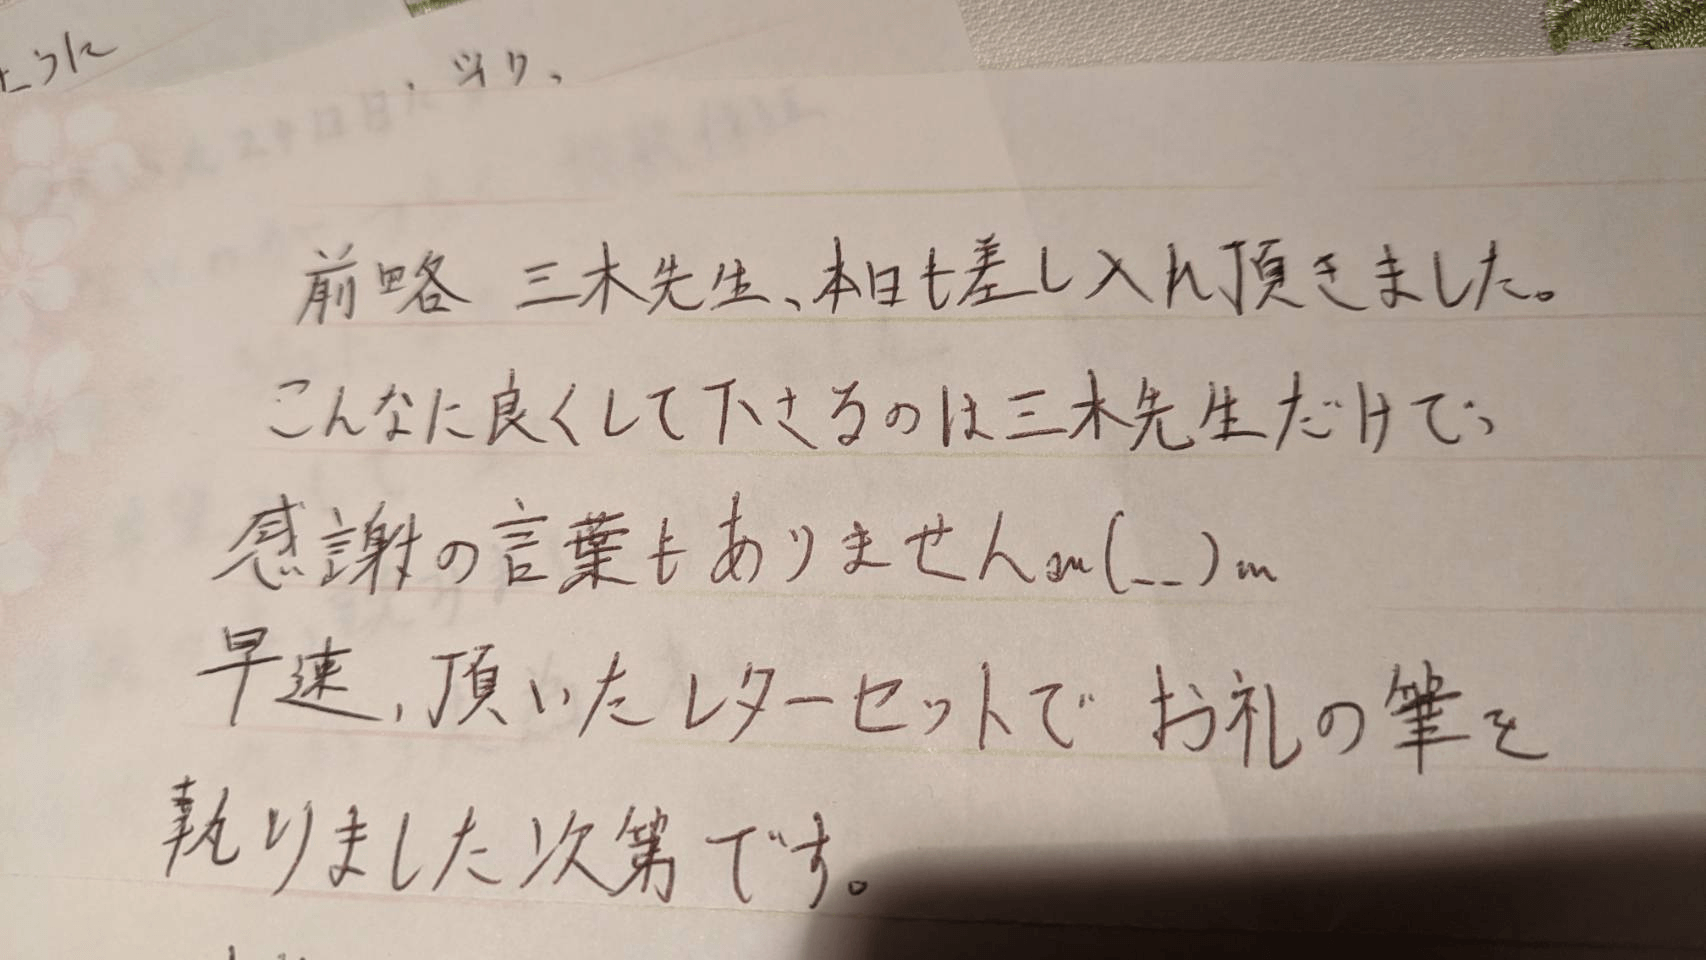 前略 三木先生、本日も差し入れ頂きました。
こんなに良くして下さるのは三木先生だけで、
感謝の言葉もありませんm(__)m
早速、頂いたレターセットでお礼の筆を
執りました次第です。